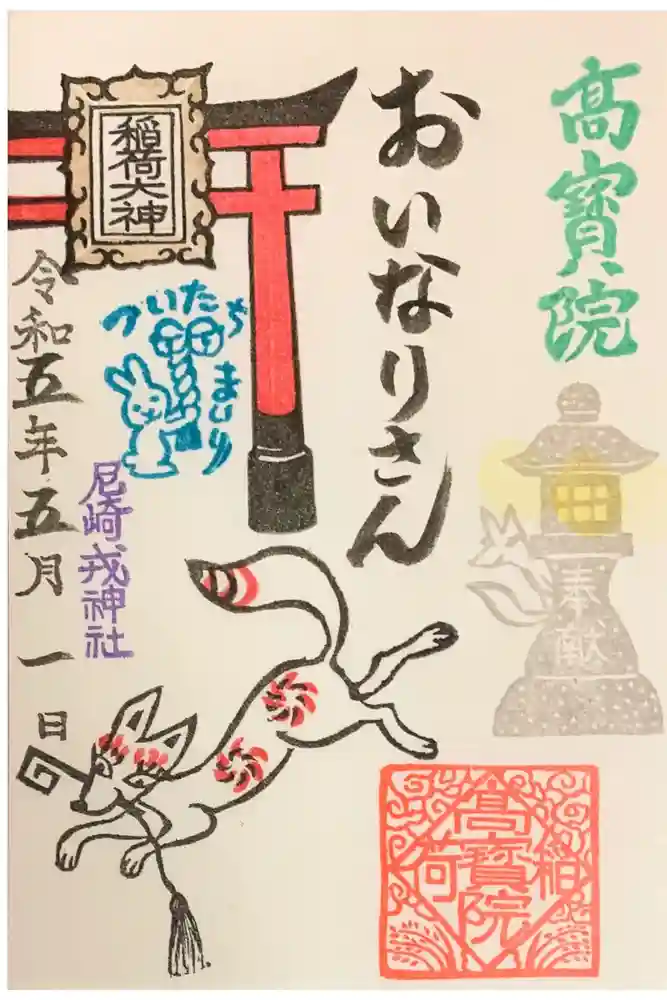 髙寳院
おいなりさん
稲荷大神
ついたち
まいり
尼崎戎神社
令和五年五月一日
奉献
髙寳院
稲荷